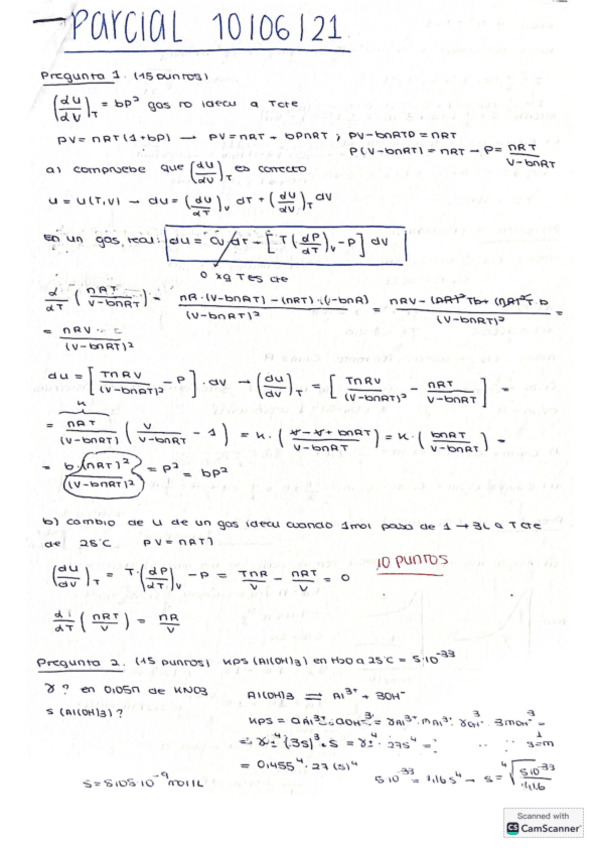 - PARCIAL 10/06/21
Pregunta 1. (15 puntos)
(du/dV)T = bP² gas no ideal a T cte
PV = nRT(1+bP) → PV = nRT + bPnRT ; PV-bnRTP = nRT
P(V-bnRT) = nRT → P = nRT/(V-bnRT)
a) compruebe que (du/dV)T es correcto
u = u(T,V) → du = (du/dT)V dT + (du/dV)T dV
En un gas real: du = Cv dT - [T(dP/dT)V - P] dV
0 xq T es cte
d/dT (nRT/(V-bnRT)) = (nR·(V-bnRT) - (nRT)·(-bnR))/(V-bnRT)² =
= nRV/(V-bnRT)²
du = [TnRV/(V-bnRT)² - P]·dV → (du/dV)T = [TnRV/(V-bnRT)² - nRT/(V-bnRT)] =
= nRT/(V-bnRT) (V/(V-bnRT) - 1) = K·((V-V+bnRT)/(V-bnRT)) = K·(bnRT/(V-bnRT)) =
= b·(nRT)²/(V-bnRT)² = P² = bP²
b) cambio de U de un gas ideal cuando 1mol pasa de 1 → 3L a T cte
de 25°C PV = nRT)
10 PUNTOS
(du/dV)T = T·(dP/dT)V - P = TnR/V - nRT/V = 0
d/dT (nRT/V) = nR/V
Pregunta 2. (15 puntos) Kps (Al(OH)3) en H2O a 25°C = 5·10⁻³³
γ? en 0,05n de KNO3
Al(OH)3 ⇌ Al³⁺ + 3OH⁻
s (Al(OH)3)?
= γ±⁴ (3s)³·s = γ±⁴·27s⁴ =
= 0,455⁴·27(s)⁴
5·10⁻³³ = 1,16s⁴ → s = ⁴√(5·10⁻³³/1,16)
s = 8,105·10⁻⁹ mol/L
Scanned with
CS CamScanner